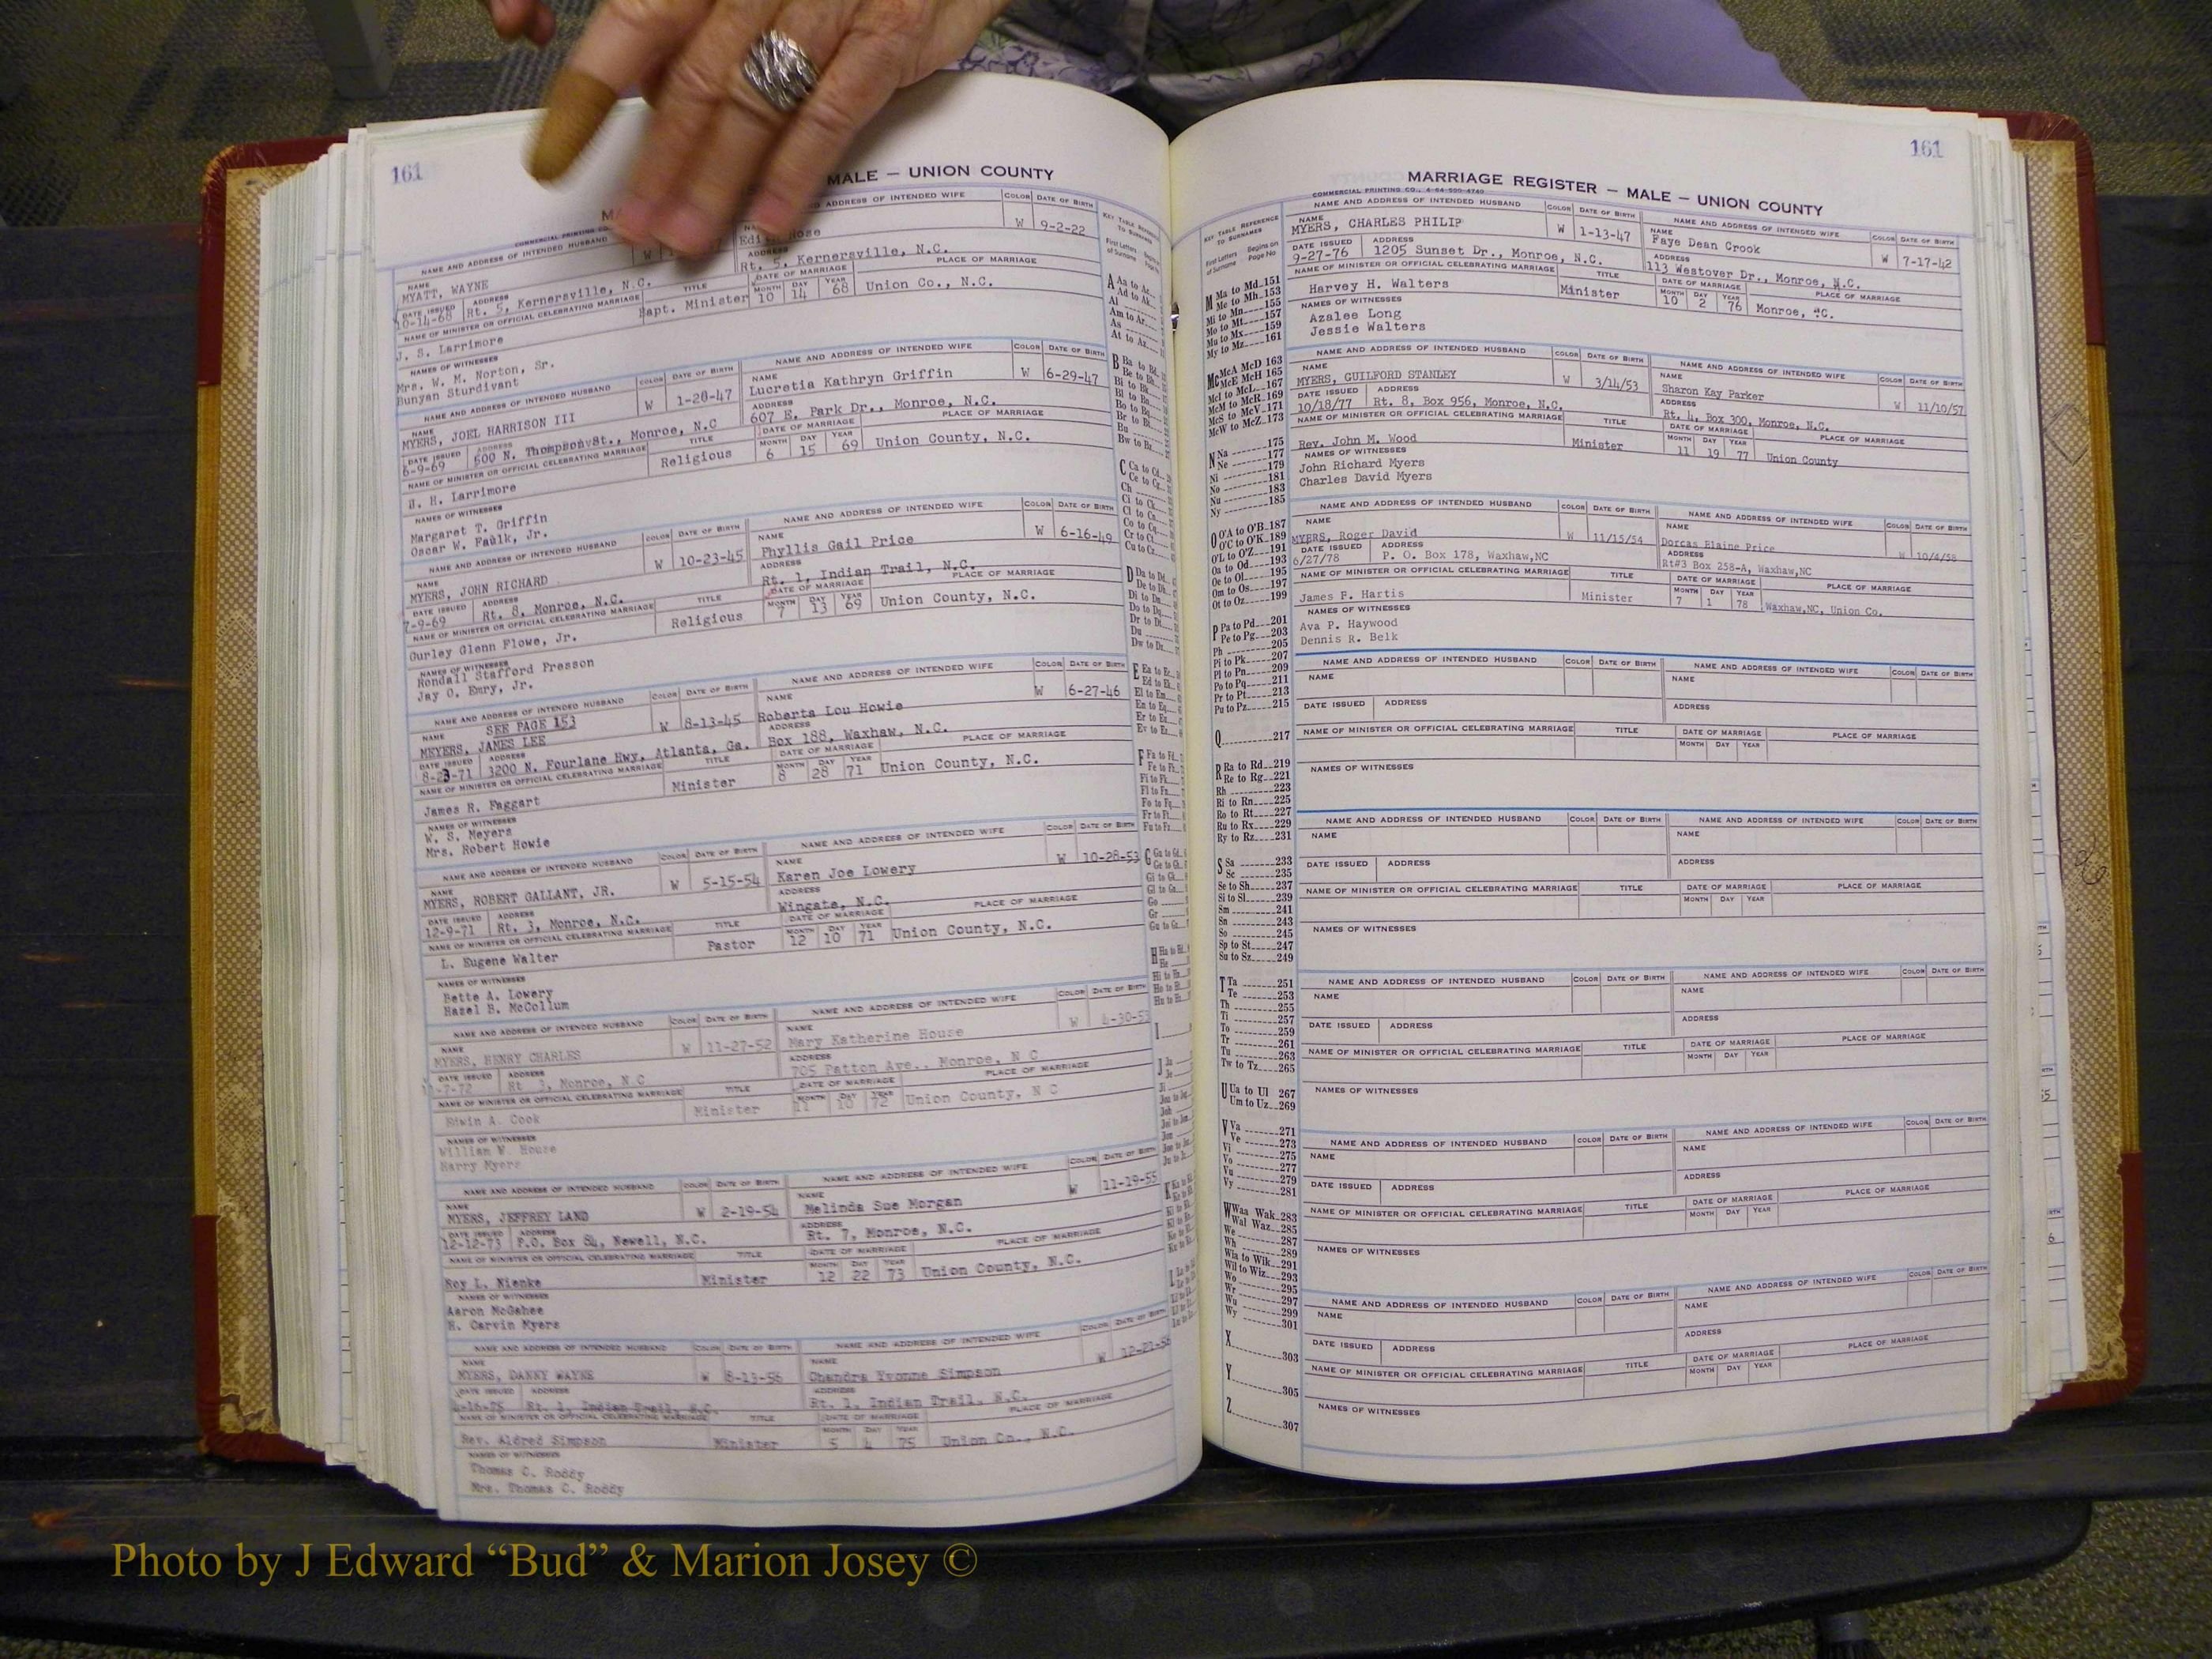 161
MALE — UNION COUNTY
COMMERCIAL PRINTING CO.
NAME AND ADDRESS OF INTENDED HUSBAND
ADDRESS OF INTENDED WIFE
COLOR DATE OF BIRTH
NAME
MYATT, WAYNE
W
Rose
W 9-2-22
DATE ISSUED ADDRESS
10-14-68 Rt. 5, Kernersville, N.C.
ADDRESS
Rt. 5, Kernersville, N.C.
NAME OF MINISTER OR OFFICIAL CELEBRATING MARRIAGE TITLE DATE OF MARRIAGE PLACE OF MARRIAGE
MONTH DAY YEAR
J. S. Larrimore Bapt. Minister 10 14 68 Union Co., N.C.
NAMES OF WITNESSES
Mrs. W. M. Norton, Sr.
Bunyan Sturdivant
NAME AND ADDRESS OF INTENDED HUSBAND COLOR DATE OF BIRTH NAME AND ADDRESS OF INTENDED WIFE COLOR DATE OF BIRTH
NAME
MYERS, JOEL HARRISON III W 1-20-47
NAME
Lucretia Kathryn Griffin W 6-29-47
DATE ISSUED ADDRESS
6-9-69 500 N. Thompson St., Monroe, N.C
ADDRESS
607 E. Park Dr., Monroe, N.C.
NAME OF MINISTER OR OFFICIAL CELEBRATING MARRIAGE TITLE DATE OF MARRIAGE PLACE OF MARRIAGE
MONTH DAY YEAR
Larrimore Religious 6 15 69 Union County, N.C.
NAMES OF WITNESSES
Margaret T. Griffin
Oscar W. Faulk, Jr.
NAME AND ADDRESS OF INTENDED HUSBAND COLOR DATE OF BIRTH NAME AND ADDRESS OF INTENDED WIFE COLOR DATE OF BIRTH
NAME
MYERS, JOHN RICHARD W 10-23-45
NAME
Phyllis Gail Price W 6-16-49
DATE ISSUED ADDRESS
7-9-69 Rt. 8, Monroe, N.C.
ADDRESS
Rt. 1, Indian Trail, N.C.
NAME OF MINISTER OR OFFICIAL CELEBRATING MARRIAGE TITLE DATE OF MARRIAGE PLACE OF MARRIAGE
MONTH DAY YEAR
Gurley Glenn Flowe, Jr. Religious 7 13 69 Union County, N.C.
NAMES OF WITNESSES
Rondall Stafford Presson
Jay O. Emry, Jr.
NAME AND ADDRESS OF INTENDED HUSBAND COLOR DATE OF BIRTH NAME AND ADDRESS OF INTENDED WIFE COLOR DATE OF BIRTH
NAME SEE PAGE 153
MEYERS, JAMES LEE W 8-13-45
NAME
Roberta Lou Howie W 6-27-46
DATE ISSUED ADDRESS
8-23-71 3200 N. Fourlane Hwy, Atlanta, Ga.
ADDRESS
Box 188, Waxhaw, N.C.
NAME OF MINISTER OR OFFICIAL CELEBRATING MARRIAGE TITLE DATE OF MARRIAGE PLACE OF MARRIAGE
MONTH DAY YEAR
James R. Faggart Minister 8 28 71 Union County, N.C.
NAMES OF WITNESSES
W. S. Meyers
Mrs. Robert Howie
NAME AND ADDRESS OF INTENDED HUSBAND COLOR DATE OF BIRTH NAME AND ADDRESS OF INTENDED WIFE COLOR DATE OF BIRTH
NAME
MYERS, ROBERT GALLANT, JR. W 5-15-54
NAME
Karen Joe Lowery W 10-28-53
DATE ISSUED ADDRESS
12-9-71 Rt. 3, Monroe, N.C.
ADDRESS
Wingate, N.C.
NAME OF MINISTER OR OFFICIAL CELEBRATING MARRIAGE TITLE DATE OF MARRIAGE PLACE OF MARRIAGE
MONTH DAY YEAR
L. Eugene Walter Pastor 12 10 71 Union County, N.C.
NAMES OF WITNESSES
Bette A. Lowery
Hazel B. McCollum
NAME AND ADDRESS OF INTENDED HUSBAND COLOR DATE OF BIRTH NAME AND ADDRESS OF INTENDED WIFE COLOR DATE OF BIRTH
NAME
MYERS, HENRY CHARLES W 11-27-52
NAME
Mary Katherine House W 4-30-53
DATE ISSUED ADDRESS
Rt 3, Monroe, N.C
ADDRESS
705 Patton Ave., Monroe, N C
NAME OF MINISTER OR OFFICIAL CELEBRATING MARRIAGE TITLE DATE OF MARRIAGE PLACE OF MARRIAGE
MONTH DAY YEAR
Edwin A. Cook Minister 11 10 72 Union County, N C
NAMES OF WITNESSES
William W. House
Harry Myers
NAME AND ADDRESS OF INTENDED HUSBAND COLOR DATE OF BIRTH NAME AND ADDRESS OF INTENDED WIFE COLOR DATE OF BIRTH
NAME
MYERS, JEFFREY LAND W 2-19-54
NAME
Melinda Sue Morgan W 11-19-55
DATE ISSUED ADDRESS
12-12-73 P.O. Box 84, Newell, N.C.
ADDRESS
Rt. 7, Monroe, N.C.
NAME OF MINISTER OR OFFICIAL CELEBRATING MARRIAGE TITLE DATE OF MARRIAGE PLACE OF MARRIAGE
MONTH DAY YEAR
Roy L. Nienke Minister 12 22 73 Union County, N.C.
NAMES OF WITNESSES
Aaron McGahee
H. Carvin Myers
NAME AND ADDRESS OF INTENDED HUSBAND COLOR DATE OF BIRTH NAME AND ADDRESS OF INTENDED WIFE COLOR DATE OF BIRTH
NAME
MYERS, DANNY WAYNE W 8-13-56
NAME
Chandra Yvonne Simpson W 12-21-56
DATE ISSUED ADDRESS
4-16-75 Rt. 1, Indian Trail, N.C.
ADDRESS
Rt. 1, Indian Trail, N.C.
NAME OF MINISTER OR OFFICIAL CELEBRATING MARRIAGE TITLE DATE OF MARRIAGE PLACE OF MARRIAGE
MONTH DAY YEAR
Rev. Aldred Simpson Minister 5 4 75 Union Co., N.C.
NAMES OF WITNESSES
Thomas C. Roddy
Mrs. Thomas C. Roddy
161
MARRIAGE REGISTER — MALE — UNION COUNTY
KEY TABLE REFERENCE TO SURNAMES
First Letters of Surname Begins on Page No
M Ma to Md 151
Me to Mh 153
Mi to Mn 155
Mo to Mt 157
Mu to Mx 159
My to Mz 161
Mc McA McD 163
McE McH 165
McI to McL 167
McM to McR 169
McS to McV 171
McW to McZ 173
N Na 175
Ne 177
Ni 179
No 181
Nu 183
Ny 185
O O'A to O'B 187
O'C to O'K 189
O'L to O'Z 191
Oa to Od 193
Oe to Ol 195
Om to Os 197
Ot to Oz 199
P Pa to Pd 201
Pe to Pg 203
Ph 205
Pi to Pk 207
Pl to Pn 209
Po to Pq 211
Pr to Pt 213
Pu to Pz 215
Q 217
R Ra to Rd 219
Re to Rg 221
Rh 223
Ri to Rn 225
Ro to Rt 227
Ru to Rx 229
Ry to Rz 231
S Sa 233
Sc 235
Se to Sh 237
Si to Sl 239
Sm 241
Sn 243
So 245
Sp to St 247
Su to Sz 249
T Ta 251
Te 253
Th 255
Ti 257
To 259
Tr 261
Tu 263
Tw to Tz 265
U Ua to Ul 267
Um to Uz 269
V Va 271
Ve 273
Vi 275
Vo 277
Vu 279
Vy 281
W Waa Wak 283
Wal Waz 285
We 287
Wh 289
Wia to Wik 291
Wil to Wiz 293
Wo 295
Wr 297
Wu 299
Wy 301
X 303
Y 305
Z 307
COMMERCIAL PRINTING CO.
NAME AND ADDRESS OF INTENDED HUSBAND COLOR DATE OF BIRTH NAME AND ADDRESS OF INTENDED WIFE COLOR DATE OF BIRTH
NAME
MYERS, CHARLES PHILIP W 1-13-47
NAME
Faye Dean Crook W 7-17-42
DATE ISSUED ADDRESS
9-27-76 1205 Sunset Dr., Monroe, N.C.
ADDRESS
113 Westover Dr., Monroe, N.C.
NAME OF MINISTER OR OFFICIAL CELEBRATING MARRIAGE TITLE DATE OF MARRIAGE PLACE OF MARRIAGE
MONTH DAY YEAR
Harvey H. Walters Minister 10 2 76 Monroe, NC.
NAMES OF WITNESSES
Azalee Long
Jessie Walters
NAME AND ADDRESS OF INTENDED HUSBAND COLOR DATE OF BIRTH NAME AND ADDRESS OF INTENDED WIFE COLOR DATE OF BIRTH
NAME
MYERS, GUILFORD STANLEY W 3/14/53
NAME
Sharon Kay Parker W 11/10/57
DATE ISSUED ADDRESS
10/18/77 Rt. 8, Box 956, Monroe, N.C.
ADDRESS
Rt. 4, Box 300, Monroe, N.C.
NAME OF MINISTER OR OFFICIAL CELEBRATING MARRIAGE TITLE DATE OF MARRIAGE PLACE OF MARRIAGE
MONTH DAY YEAR
Rev. John M. Wood Minister 11 19 77 Union County
NAMES OF WITNESSES
John Richard Myers
Charles David Myers
NAME AND ADDRESS OF INTENDED HUSBAND COLOR DATE OF BIRTH NAME AND ADDRESS OF INTENDED WIFE COLOR DATE OF BIRTH
NAME
MYERS, Roger David W 11/15/54
NAME
Dorcas Elaine Price W 10/4/58
DATE ISSUED ADDRESS
6/27/78 P. O. Box 178, Waxhaw,NC
ADDRESS
Rt#3 Box 258-A, Waxhaw,NC
NAME OF MINISTER OR OFFICIAL CELEBRATING MARRIAGE TITLE DATE OF MARRIAGE PLACE OF MARRIAGE
MONTH DAY YEAR
James F. Hartis Minister 7 1 78 Waxhaw,NC, Union Co.
NAMES OF WITNESSES
Ava P. Haywood
Dennis R. Belk
NAME AND ADDRESS OF INTENDED HUSBAND COLOR DATE OF BIRTH NAME AND ADDRESS OF INTENDED WIFE COLOR DATE OF BIRTH
NAME NAME
DATE ISSUED ADDRESS ADDRESS
NAME OF MINISTER OR OFFICIAL CELEBRATING MARRIAGE TITLE DATE OF MARRIAGE PLACE OF MARRIAGE
MONTH DAY YEAR
NAMES OF WITNESSES
NAME AND ADDRESS OF INTENDED HUSBAND COLOR DATE OF BIRTH NAME AND ADDRESS OF INTENDED WIFE COLOR DATE OF BIRTH
NAME NAME
DATE ISSUED ADDRESS ADDRESS
NAME OF MINISTER OR OFFICIAL CELEBRATING MARRIAGE TITLE DATE OF MARRIAGE PLACE OF MARRIAGE
MONTH DAY YEAR
NAMES OF WITNESSES
NAME AND ADDRESS OF INTENDED HUSBAND COLOR DATE OF BIRTH NAME AND ADDRESS OF INTENDED WIFE COLOR DATE OF BIRTH
NAME NAME
DATE ISSUED ADDRESS ADDRESS
NAME OF MINISTER OR OFFICIAL CELEBRATING MARRIAGE TITLE DATE OF MARRIAGE PLACE OF MARRIAGE
MONTH DAY YEAR
NAMES OF WITNESSES
NAME AND ADDRESS OF INTENDED HUSBAND COLOR DATE OF BIRTH NAME AND ADDRESS OF INTENDED WIFE COLOR DATE OF BIRTH
NAME NAME
DATE ISSUED ADDRESS ADDRESS
NAME OF MINISTER OR OFFICIAL CELEBRATING MARRIAGE TITLE DATE OF MARRIAGE PLACE OF MARRIAGE
MONTH DAY YEAR
NAMES OF WITNESSES
NAME AND ADDRESS OF INTENDED HUSBAND COLOR DATE OF BIRTH NAME AND ADDRESS OF INTENDED WIFE COLOR DATE OF BIRTH
NAME NAME
DATE ISSUED ADDRESS ADDRESS
NAME OF MINISTER OR OFFICIAL CELEBRATING MARRIAGE TITLE DATE OF MARRIAGE PLACE OF MARRIAGE
MONTH DAY YEAR
NAMES OF WITNESSES
Photo by J Edward “Bud” & Marion Josey ©